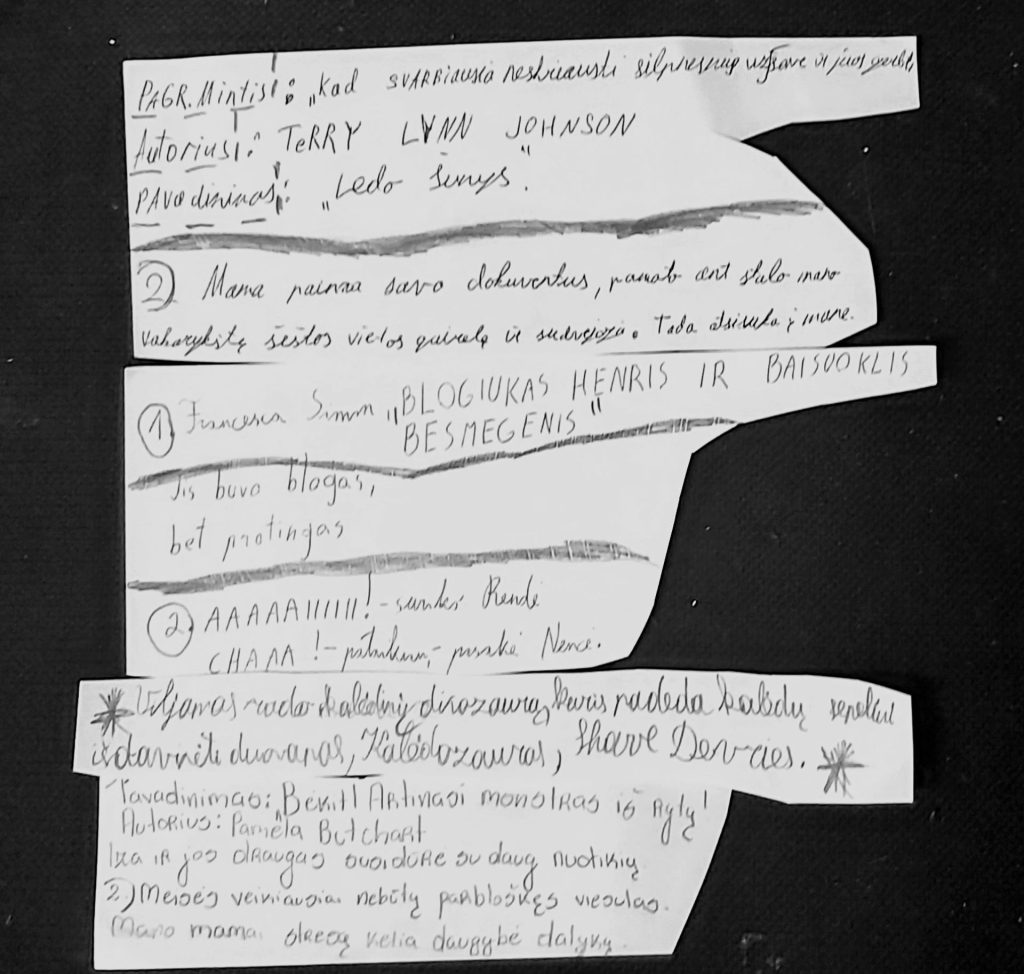 PAGR. Mintis: „Kad SVARBIAUSIA neskriausti silpnesnių už save ir juos gerbti,
Autorius: TeRRY LYNN JOHNSON
PAVadinimas: „Ledo šunys".
2) Mama paima savo dokumentus, pamato ant stalo mano
vakarykštę šeštos vietos and ir sudvejoja. Tada atsisuka į mane.
1) Francesca Simon „BLOGIUKAS HENRIS IR BAISUOKLIS
BESMEGENIS"
Jis buvo blogas,
bet protingas
2) AAAAAIIIIIII! - suriko Rendė
CHAAA! - - pasakė Nensė.
Viljamas rado kalėdinį dinozaurą, kuris padeda Kalėdų seneliui
išdavinėti dovanas, Kalėdozauras,
Pavadinimas: Bėkit! Artinasi monstras iš Rytų!
Autorius: Pamela Butchart
Iza ir jos draugas susidūrė su daug nuotikių
2) veiniausia nebūtų parbloškęs viesulas.
Mano mama stresą kelia daugybė dalykų.